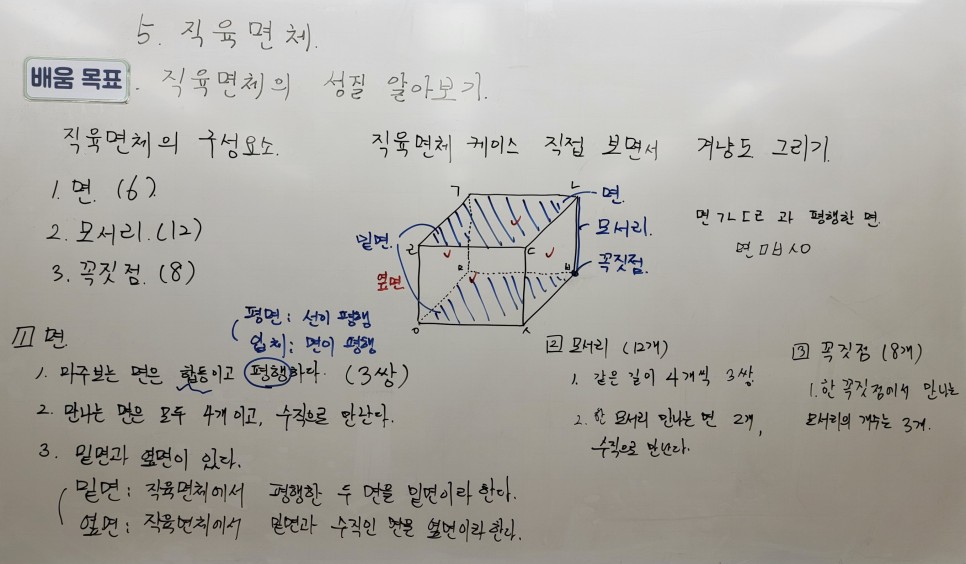 5. 직육면체.
배움 목표. 직육면체의 성질 알아보기.
직육면체의 구성요소.
1. 면. (6)
2. 모서리. (12)
3. 꼭짓점. (8)
직육면체 케이스 직접 보면서 겨냥도 그리기.
ㄱ
ㄴ
면.
모서리.
꼭짓점.
밑면.
옆면
ㄹ
ㄷ
ㅂ
ㅁ
ㅅ
면 ㄱㄴㄷㄹ 과 평행한 면.
면 ㅁㅂㅅㅇ
평면: 선이 평행
입체: 면이 평행
1 면.
1. 마주보는 면은 합동이고 평행하다. (3쌍)
2. 만나는 면은 모두 4개이고, 수직으로 만난다.
3. 밑면과 옆면이 있다.
밑면: 직육면체에서 평행한 두 면을 밑면이라 한다.
옆면: 직육면체에서 밑면과 수직인 면을 옆면이라 한다.
2 모서리 (12개)
1. 같은 길이 4개씩 3쌍.
2. 한 모서리 만나는 면 2개,
수직으로 만난다.
3 꼭짓점 (8개)
1. 한 꼭짓점에서 만나는
모서리의 개수는 3개.